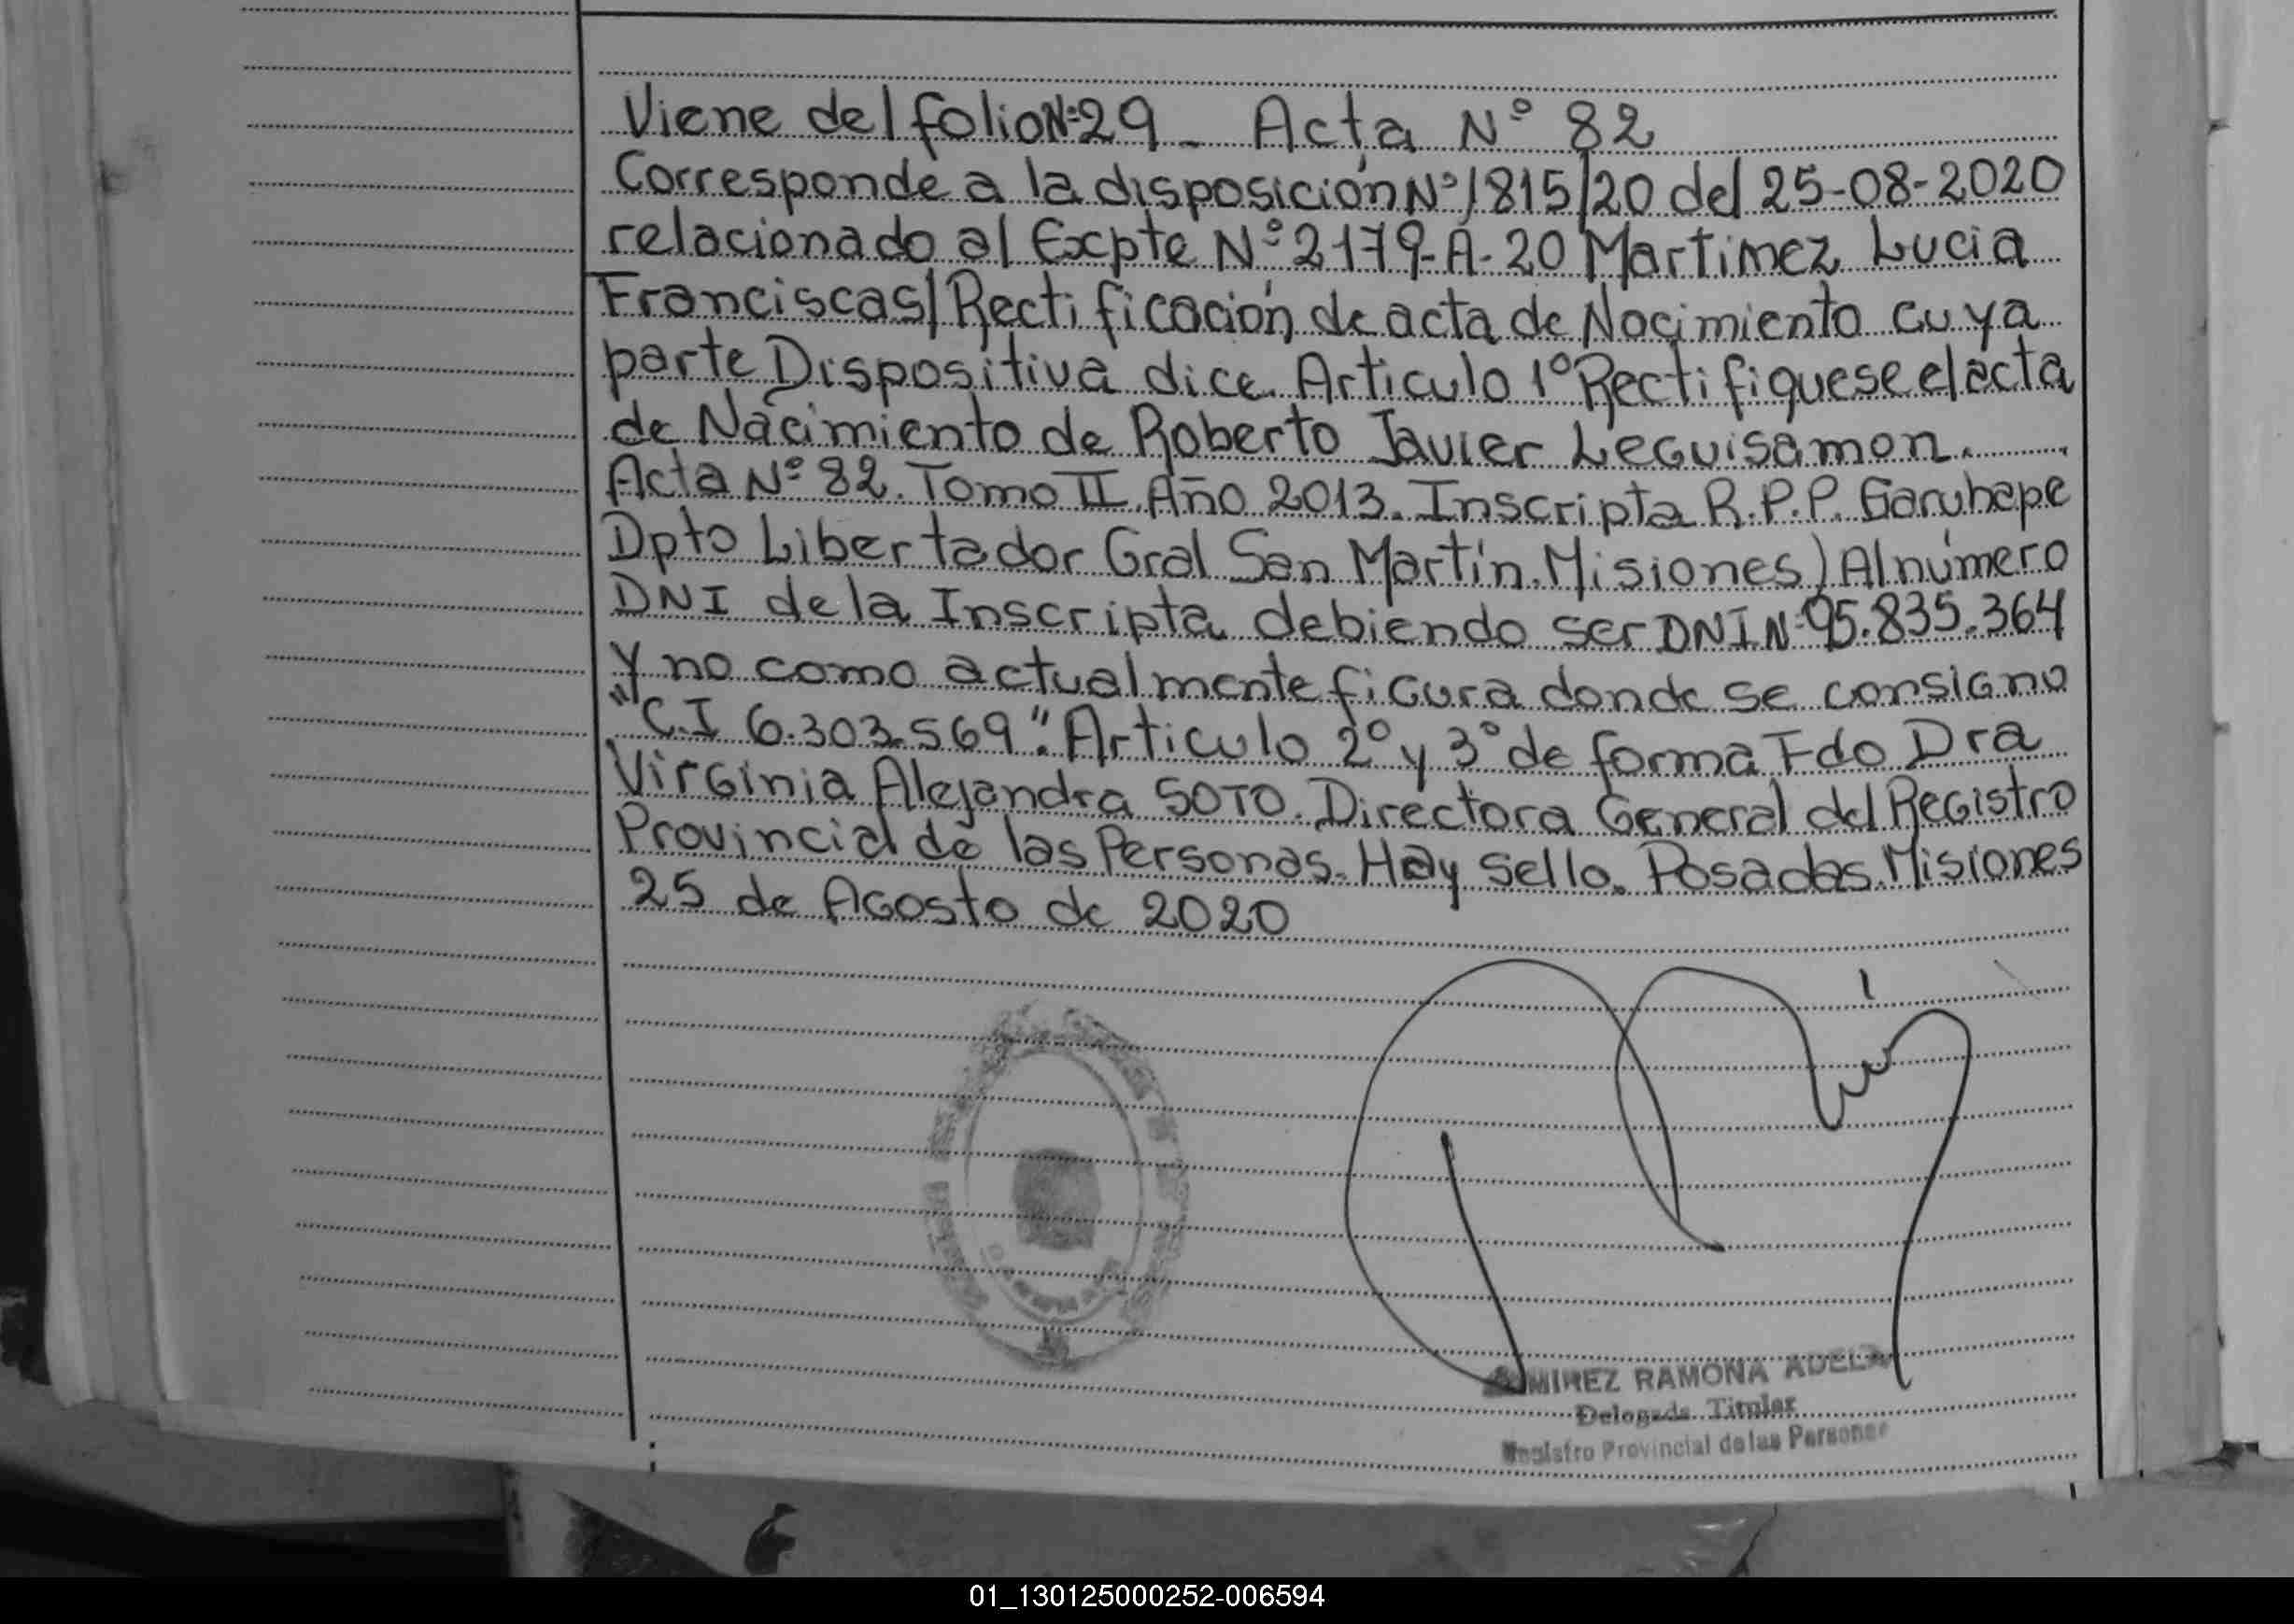 Viene del folio Nº 29 - Acta Nº 82
Corresponde a la disposición Nº 1815/20 del 25-08-2020
relacionado al Expte Nº 2179-A-20 Martinez Lucia
Francisca s/ Rectificación de acta de Nacimiento cuya
parte Dispositiva dice. Articulo 1º Rectifiquese el acta
de Nacimiento de Roberto Javier Leguisamon.
Acta Nº 82. Tomo II. Año 2013. Inscripta R.P.P. Garuhape
Dpto Libertador Gral San Martín. Misiones) Al número
DNI de la Inscripta debiendo ser DNI Nº 95.835.364
y no como actualmente figura donde se consigno
"C.I 6.303.569". Articulo 2º y 3º de forma Fdo Dra
Virginia Alejandra SOTO. Directora General del Registro
Provincial de las Personas. Hay sello. Posadas. Misiones
25 de Agosto de 2020
RAMONA ADELA
Delegada Titular
Registro Provincial de las Personas
01_130125000252-006594